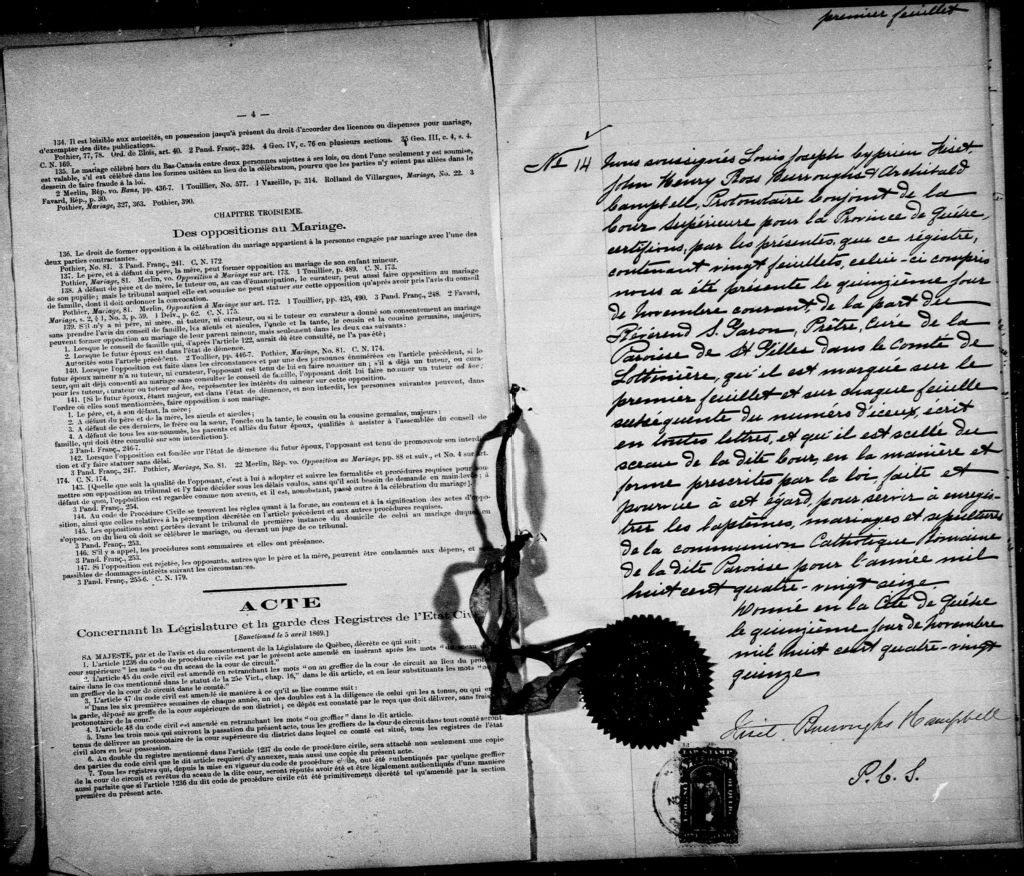 — 4 —
134. Il est loisible aux autorités, en possession jusqu'à présent du droit d'accorder des licences ou dispenses pour mariage,
d'exempter des dites publications.
Pothier, 77, 78. Ord. de Blois, art. 40. 2 Pand. Franç., 324. 4 Geo. IV, c. 76 en plusieurs sections. 35 Geo. III, c. 4, s. 4.
C. N. 169.
135. Le mariage célébré hors du Bas-Canada entre deux personnes sujettes à ses lois, ou dont l'une seulement y est soumise,
est valable, s'il est célébré dans les formes usitées au lieu de la célébration, pourvu que les parties n'y soient pas allées dans le
dessein de faire fraude à la loi.
2 Merlin, Rép. vo. Bans, pp. 436-7. 1 Touillier, No. 577. 1 Vazeille, p. 314. Rolland de Villargues, Mariage, No. 22. 3
Favard, Rép., p. 30.
Pothier, Mariage, 327, 363. Pothier, 390.
CHAPITRE TROISIÈME.
Des oppositions au Mariage.
136. Le droit de former opposition à la célébration du mariage appartient à la personne engagée par mariage avec l'une des
deux parties contractantes.
Pothier, No. 81. 3 Pand. Franç., 241. C. N. 172.
137. Le père, et à défaut du père, la mère, peut former opposition au mariage de son enfant mineur.
Pothier, Mariage, 81. Merlin, vo. Opposition à Mariage sur art. 173. 1 Touillier, p. 489. C. N. 173.
138. A défaut de père et de mère, le tuteur ou, au cas d'émancipation, le curateur, peut aussi faire opposition au mariage
de son pupille; mais le tribunal auquel elle est soumise ne peut statuer sur cette opposition qu'après avoir pris l'avis du conseil
de famille, dont il doit ordonner la convocation.
Pothier, Mariage, 81. Merlin, Opposition à Mariage sur art. 172. 1 Touillier, pp. 425, 490. 3 Pand. Franç., 248. 2 Favard,
Mariage, s. 2, § 1, No. 3, p. 59. 1 Delv., p. 62. C. N. 175.
139. S'il n'y a ni père, ni mère, ni tuteur, ni curateur, ou si le tuteur ou curateur a donné son consentement au mariage
sans prendre l'avis du conseil de famille, les aïeuls et aïeules, l'oncle et la tante, le cousin et la cousine germains, majeurs,
peuvent former opposition au mariage de leur parent mineur, mais seulement dans les deux cas suivants:
1. Lorsque le conseil de famille qui, d'après l'article 122, aurait dû être consulté, ne l'a pas été;
2. Lorsque le futur époux est dans l'état de démence.
Autorités sous l'article précédent. 2 Touillier, pp. 446-7. Pothier, Mariage, No. 81. C. N. 174.
140. Lorsque l'opposition est faite dans les circonstances et par une des personnes énumérées en l'article précédent, si le
futur époux mineur n'a ni tuteur, ni curateur, l'opposant est tenu de lui en faire nommer un; s'il a déjà un tuteur, ou cura-
teur, qui ait déjà consenti au mariage sans consulter le conseil de famille, l'opposant doit lui faire nommer un tuteur ad hoc;
pour les tuteur, curateur ou tuteur ad hoc, représenter les intérêts du mineur sur cette opposition.
141. [Si le futur époux, étant majeur, est dans l'état de démence, et non interdit, les personnes suivantes peuvent, dans
l'ordre où elles sont mentionnées, faire opposition à son mariage.
1. Le père, et, à son défaut, la mère;
2. A défaut du père et de la mère, les aïeuls et aïeules;
3. A défaut de ces derniers, le frère ou la sœur, l'oncle ou la tante, le cousin ou la cousine germains, majeurs;
4. A défaut de tous les sus-nommés, les parents et alliés du futur époux, qualifiés à assister à l'assemblée du conseil de
famille, qui doit être consulté sur son interdiction].
3 Pand. Franç., 246-7.
142. Lorsque l'opposition est fondée sur l'état de démence du futur époux, l'opposant est tenu de promouvoir son interdic-
tion et d'y faire statuer sans délai.
3 Pand. Franç., 247. Pothier, Mariage, No. 81. 22 Merlin, Rép. vo. Opposition au Mariage, pp. 88 et suiv., et No. 4 sur art.
174. C. N. 174.
143. [Quelle que soit la qualité de l'opposant, c'est à lui à adopter et suivre les formalités et procédures requises pour sou-
mettre son opposition au tribunal et l'y faire décider sous les délais voulus, sans qu'il soit besoin de demande en main-levée; à
défaut de quoi, l'opposition est regardée comme non avenu, et il est, nonobstant, passé outre à la célébration du mariage].
3 Pand. Franç., 254.
144. Au code de Procédure Civile se trouvent les règles quant à la forme, au contenu et à la signification des actes d'oppo-
sition, ainsi que celles relatives à la péremption décrétée en l'article précédent et aux autres procédures requises.
145. Les oppositions sont portées devant le tribunal de première instance du domicile de celui au mariage duquel on
s'oppose, ou du lieu où doit se célébrer le mariage, ou devant un juge de ce tribunal.
3 Pand. Franç., 253.
146. S'il y a appel, les procédures sont sommaires et elles ont préséance.
3 Pand. Franç., 253.
147. Si l'opposition est rejetée, les opposants, autres que le père et la mère, peuvent être condamnés aux dépens, et
passibles de dommages-intérêts suivant les circonstances.
3 Pand. Franç., 255-6. C. N. 179.
ACTE
Concernant la Législature et la garde des Registres de l'Etat Civil
[Sanctionné le 5 avril 1869.]
SA MAJESTE, par et de l'avis et du consentement de la Législature de Québec, décrète ce qui suit:
1. L'article 1236 du code de procédure civile est par le présent acte amendé en insérant après les mots "ou sceau de la
cour supérieure" les mots "ou du sceau de la cour de circuit."
2. L'article 45 du code civil est amendé en retranchant les mots "ou au greffier de la cour de circuit au lieu du proto-
taire dans le cas mentionné dans le statut de la 25e Vict., chap. 16," dans le dit article, et en leur substituants les mots "ou
un greffier de la cour de circuit dans le comté."
3. L'article 47 du code civil est amendé de manière à ce qu'il se lise comme suit:
"Dans les six premières semaines de chaque année, un des doubles est à la diligence de celui qui les a tenus, ou qui en
la garde, déposé au greffe de la cour supérieure de son district; ce dépôt est constaté par le reçu que doit délivrer, sans frais
protonotaire de la cour."
4. L'article 48 du code civil est amendé en retranchant les mots "ou greffier" dans le dit article.
5. Dans les trois mois qui suivront la passation du présent acte, tous les greffiers de la cour de circuit dans tout comté seront
tenus de délivrer au protonotaire de la cour supérieure du district dans lequel ce comté est situé, tous les registres de l'état
civil alors en leur possession.
6. Au double du registre mentionné dans l'article 1237 du code de procédure civile, sera attaché non seulement une copie
des parties du code civil que le dit article requiert d'y annexer, mais aussi une copie du présent acte.
7. Tous les registres qui, depuis la mise en vigueur du code de procédure civile, ont été authentiqués par quelque greffier
de la cour de circuit et revêtus du sceau de la dite cour, seront réputés avoir été et être légalement authentiqués d'une manière
aussi parfaite que si l'article 1236 du dit code de procédure civile eût été primitivement décrété tel qu'amendé par la section
première du présent acte.
premier feuillet
No 14
Nous soussignés Louis Joseph Cyprien Fiset
John Henry Ross Burroughs & Archibald
Campbell, Protonotaire Conjoint de la
Cour Supérieure pour la Province de Québec,
certifions, par les présentes, que ce registre,
contenant vingt feuillets, celui-ci compris
nous a été présenté le quinzième jour
de Novembre courant, de la part du
Révérend S. Garon, Prêtre, Curé de la
Paroisse de St Gilles dans le Comté de
Lotbinière, qu'il est marqué sur le
premier feuillet et sur chaque feuille
subséquente du numéro d'iceux, écrit
en toutes lettres, et qu'il est scellé du
sceau de la dite Cour, en la manière et
forme prescrites par la loi, faite et
pourvue à cet égard, pour servir à enregis-
trer les baptêmes, mariages et sépultures
de la communion Catholique Romaine
de la dite Paroisse pour l'année mil
huit cent quatre-vingt seize
Donné en la Cité de Québec
le quinzième jour de Novembre
mil huit cent quatre-vingt
quinze
Fiset, Burroughs & Campbell
P. C. S.
NO
QUEBEC